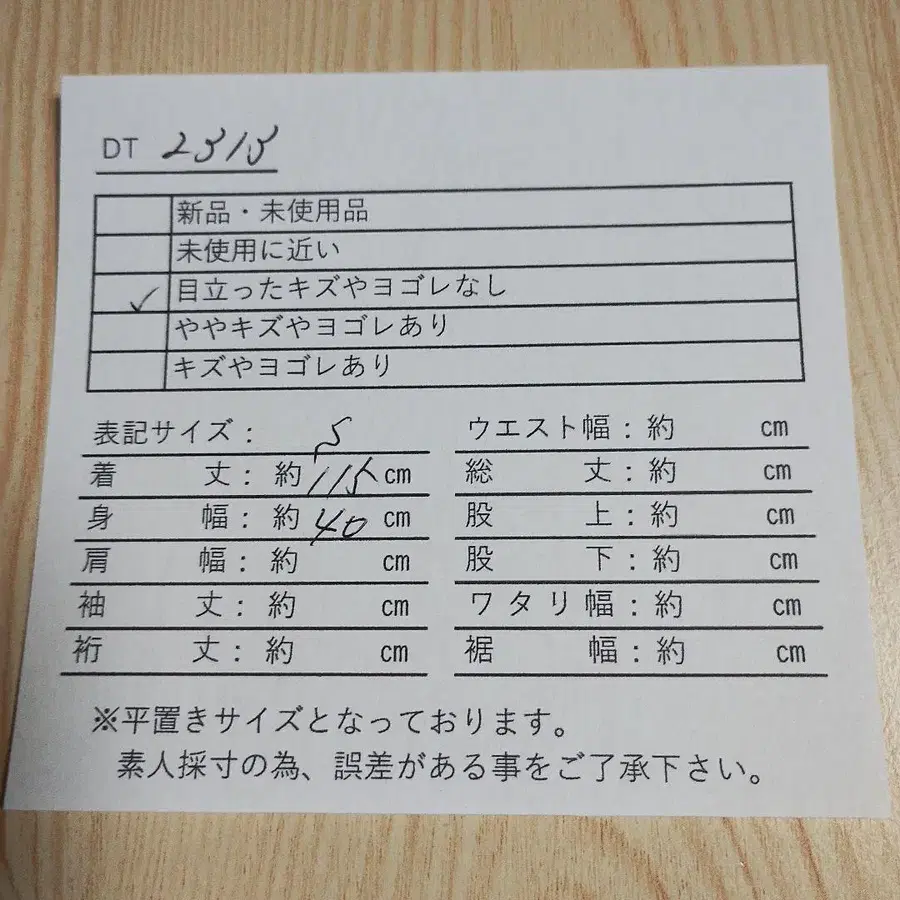 DT 2313
新品・未使用品
未使用に近い
✓ 目立ったキズやヨゴレなし
ややキズやヨゴレあり
キズやヨゴレあり
表記サイズ: S
着丈:約115cm
身幅:約40cm
肩幅:約 cm
袖丈:約 cm
裄丈:約 cm
ウエスト幅:約 cm
総丈:約 cm
股上:約 cm
股下:約 cm
ワタリ幅:約 cm
裾幅:約 cm
※平置きサイズとなっております。
素人採寸の為、誤差がある事をご了承下さい。